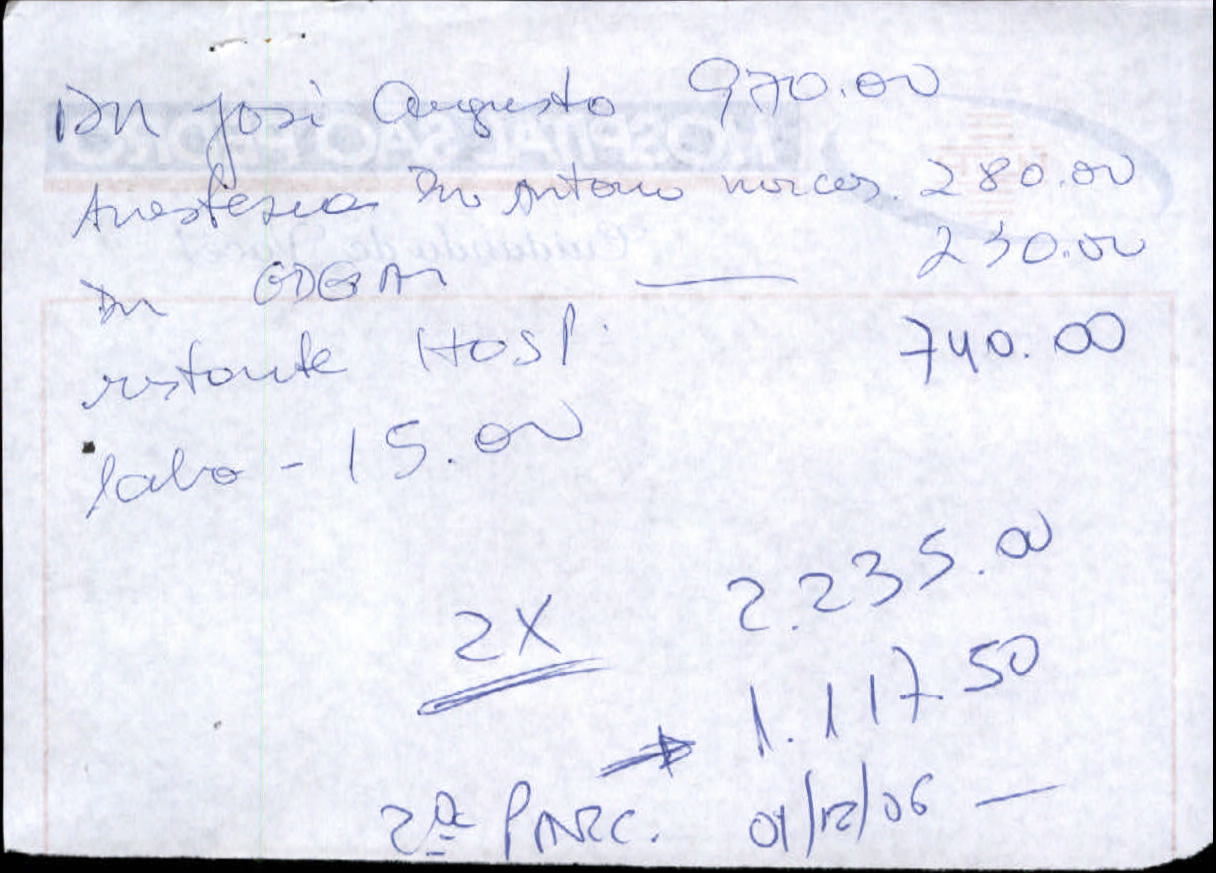 Dr José Augusto 970.00
Anestesia Dr Antonio marcos. 280.00
Dr EDGAR — 230.00
restante Hosp. 740.00
labo - 15.00
2.235.00
2X
→ 1.117.50
2ª PARC. 01/12/06 —